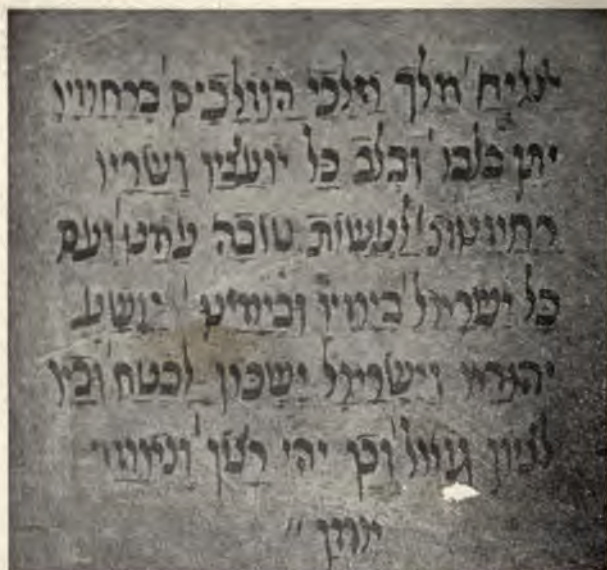 יצליח' מלך מלכי המלכים ברחמיו
יתן בלבו' ובלב כל יועציו ושריו
רחמנות' לעשות טובה עמנו' ועם
כל ישראל' בימיו ובימינו' יושע
יהודה וישראל ישכון לבטח' ובא
לציון גואל' וכן יהי רצון' ונאמר
אמן״